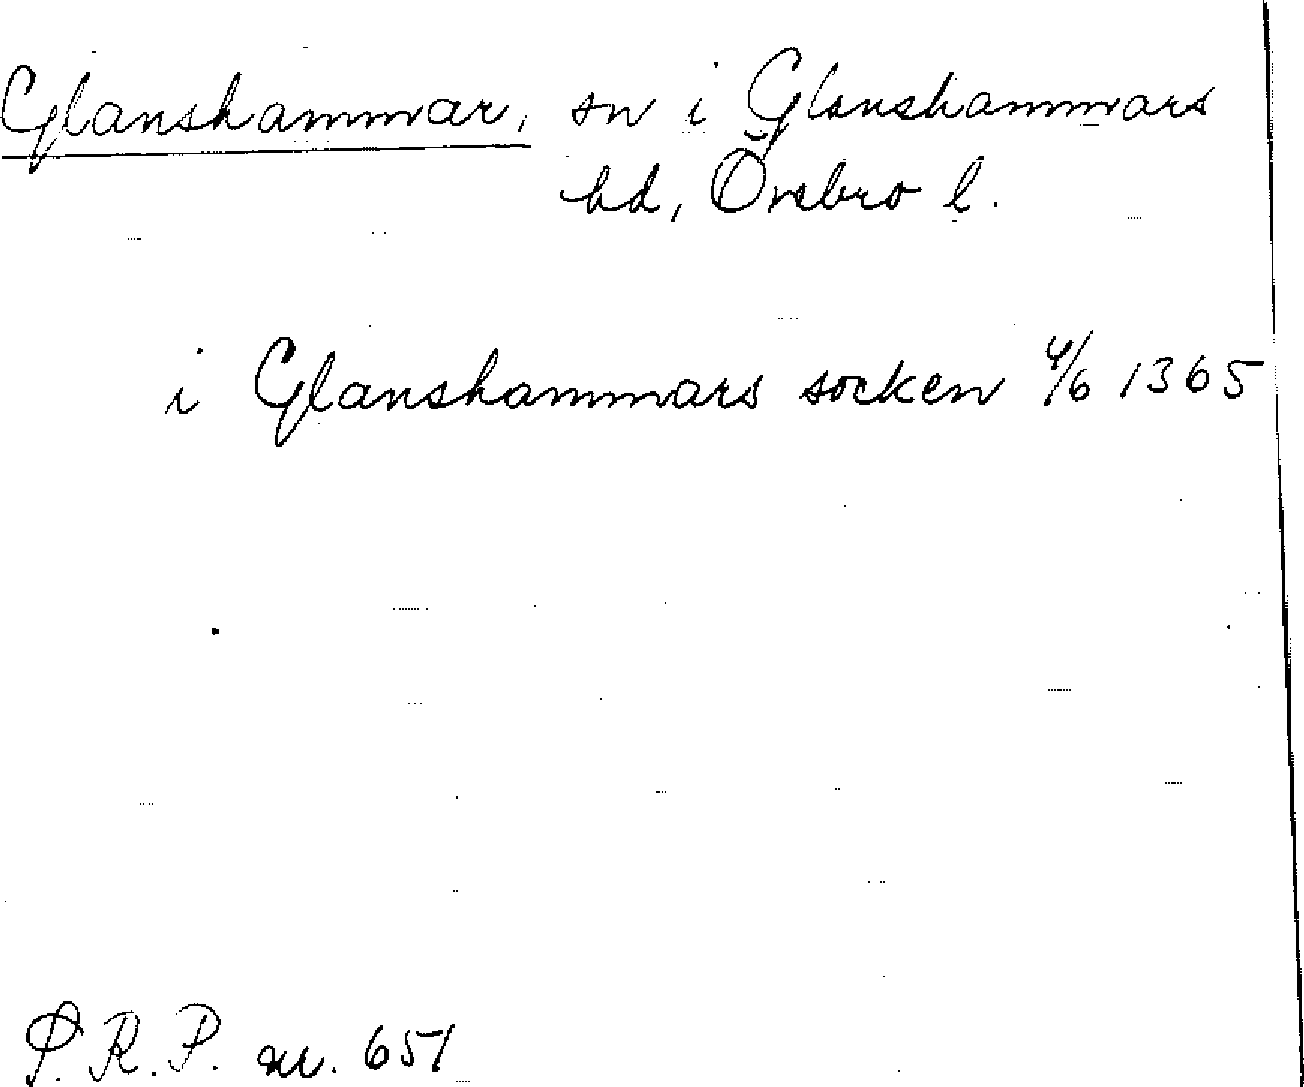 Glanshammar, sn i Glanshammars
hd, Örebro l.
i Glanshammars socken 4/6 1365
P.R.P. nr. 651